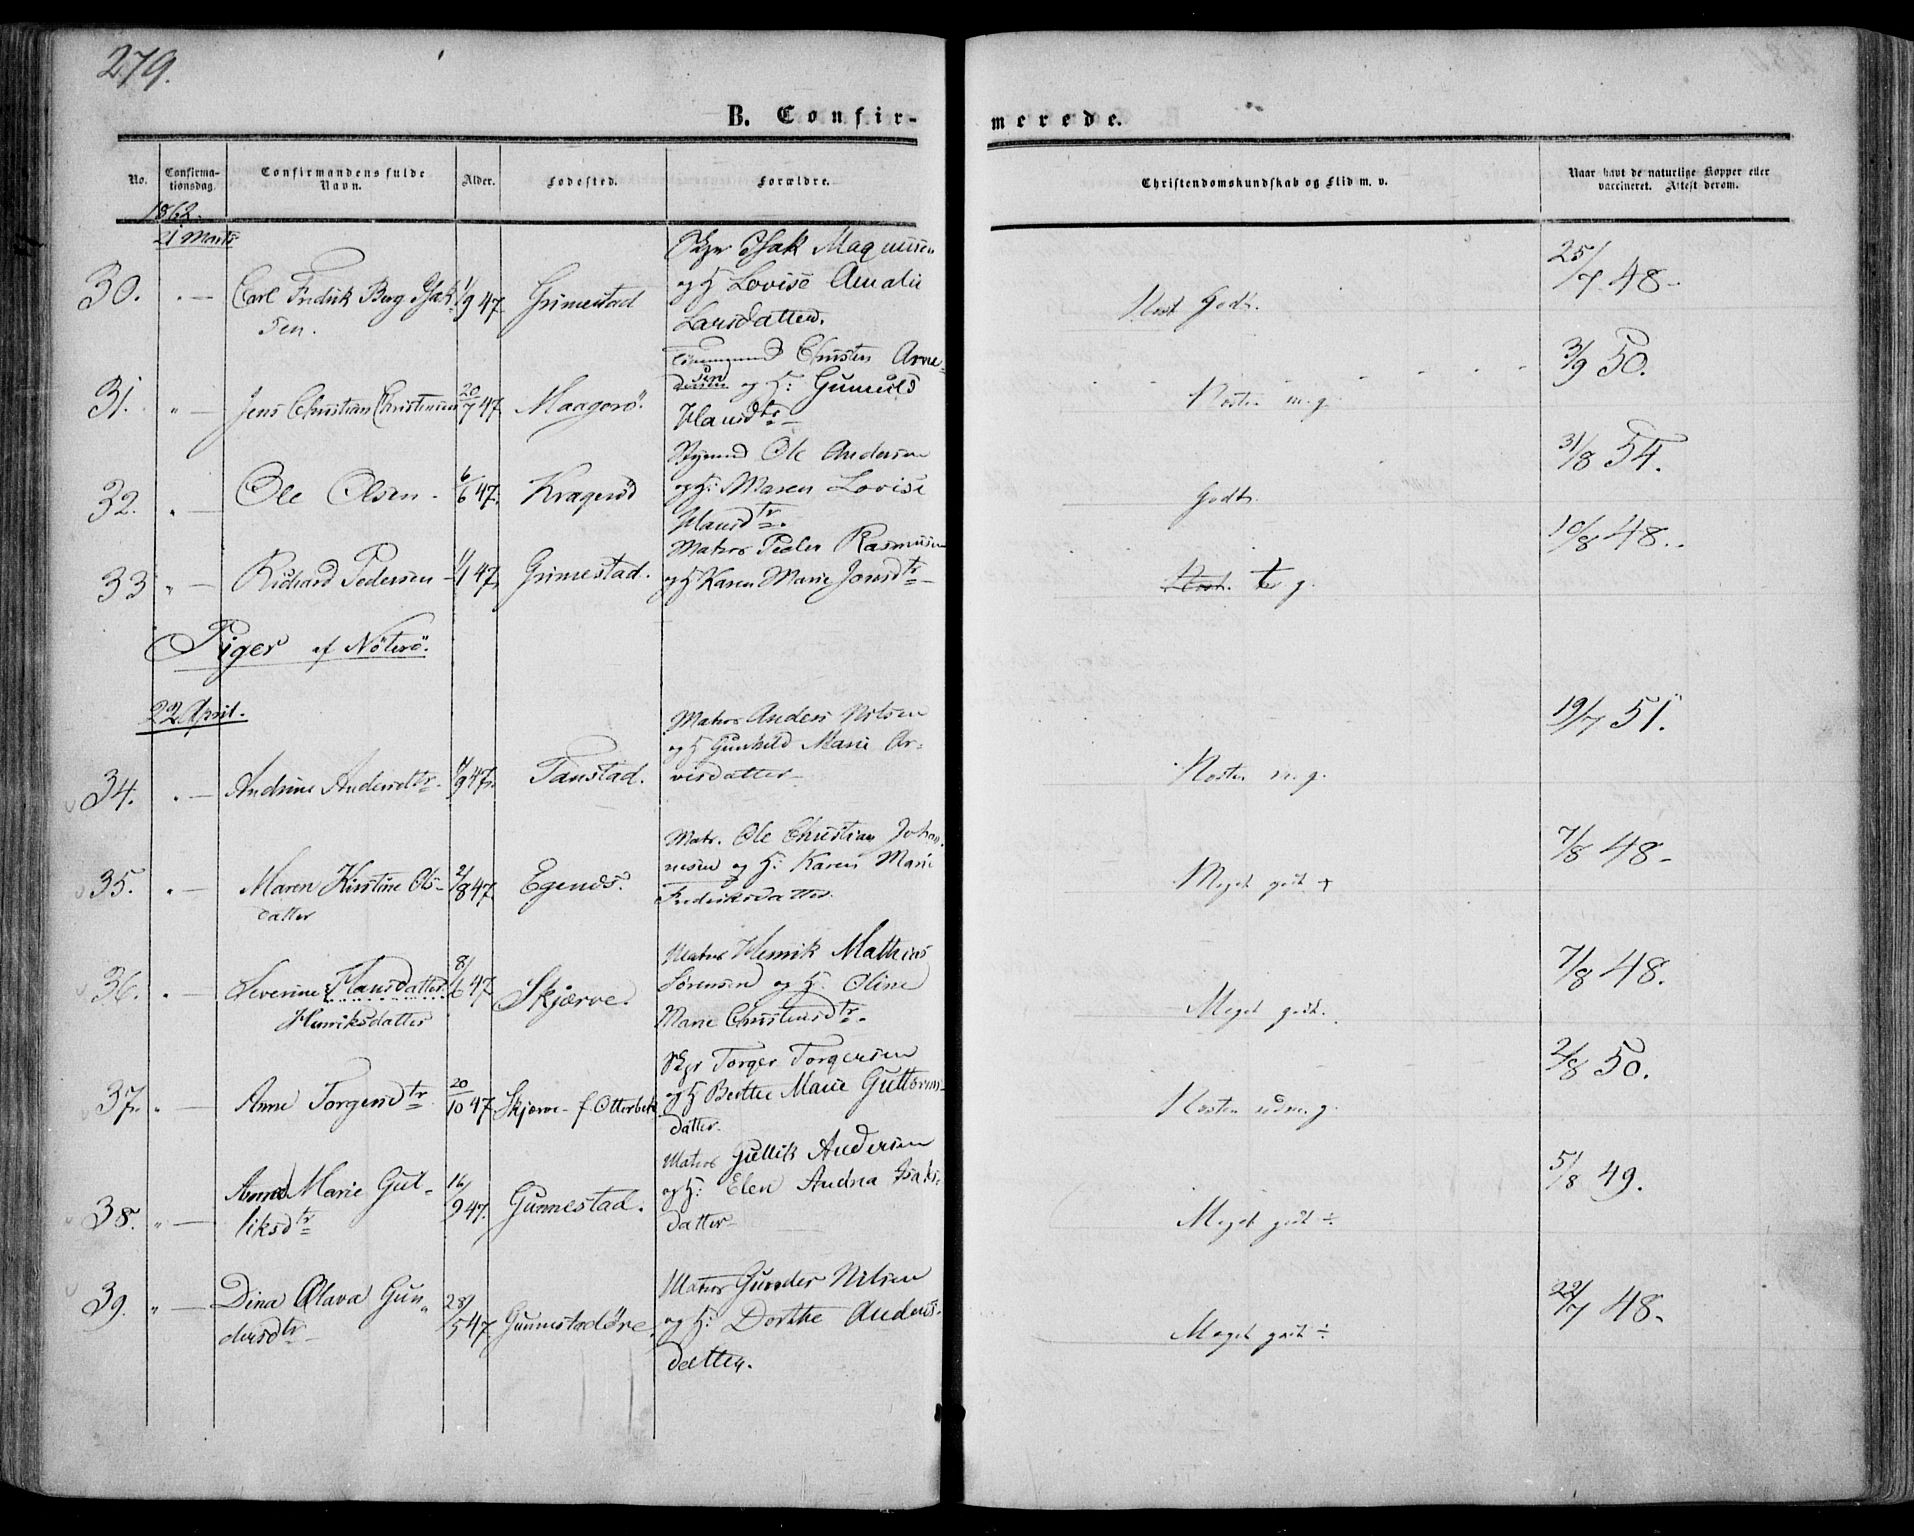 279.
B. Confir-
merede.
No.
Confirma-
tionsdag.
Confirmandens fulde
Navn.
Alder.
Fødested.
Forældre.
Christendomskundskab og Flid m. v.
Naar havt de naturlige Kopper eller
vaccineret. Attest derom.
1862.
21 Marts
30. " — Carl Fredrik Berg Isak- 1/9 47. Grimestad
sen.
Isak Magnussen
og H Lovise Amalie
Larsdatter.
Godt.
25/7 48-
31. " — Jens Christian Christensen 20/7 47 Maagerö.
Christen Arne-
sen og H: Gunild
Hansdtr
Næsten m. g.
3/9 50.
32. " — Ole Olsen. 6/6 47.
Ole Andersen
og H: Maren Lovise
Hansdtr.
Godt.
31/8 54.
33 " — Richard Pedersen 47. Grimestad.
Matros Peder Rasmusen
og H Karen Marie Jonsdtr
t g.
10/8 48.
Piger af Nöterö.
22 April.
34. " — Andrine Andersdtr. 47. Tanstad.
Matros Anders Nilsen
og H Gunhild Marie Or-
visdatter
Næsten m. g.
19/7 51.
35. " — Maren Kirstine Ols- 2/8 47. Egenæs.
datter
Matr. Ole Christian Johan-
nesen og H: Karen Marie
Fredriksdatter.
Meget godt +
7/8 48-
36. " — Severine Hansdatter 8/6 47 Skjærve.
Henriksdatter
Matros Henrik Mathias
Sörensen og H. Oline
Marie Christensdtr.
Meget godt.
7/8 48.
37. " — Anne Torgersdtr 20/10 47 Skjærve- f. Otterbek
Torger Torgersen
og H Berthe Marie Guttorms-
datter.
Næsten udm. g.
2/8 50.
38. " — Anne Marie Gul- 16/9 47. Gunnestad.
liksdtr
Matros Gullik Andersen
og H: Elen Andrea Isaks-
datter
Meget godt ÷
5/8 49.
39. " — Dina Olava Gun- 28/5 47 Gunnestadöre.
dersdtr
Matros Gunder Nilsen
og H: Dorthe Anders-
datter.
Meget godt ÷
22/7 48-